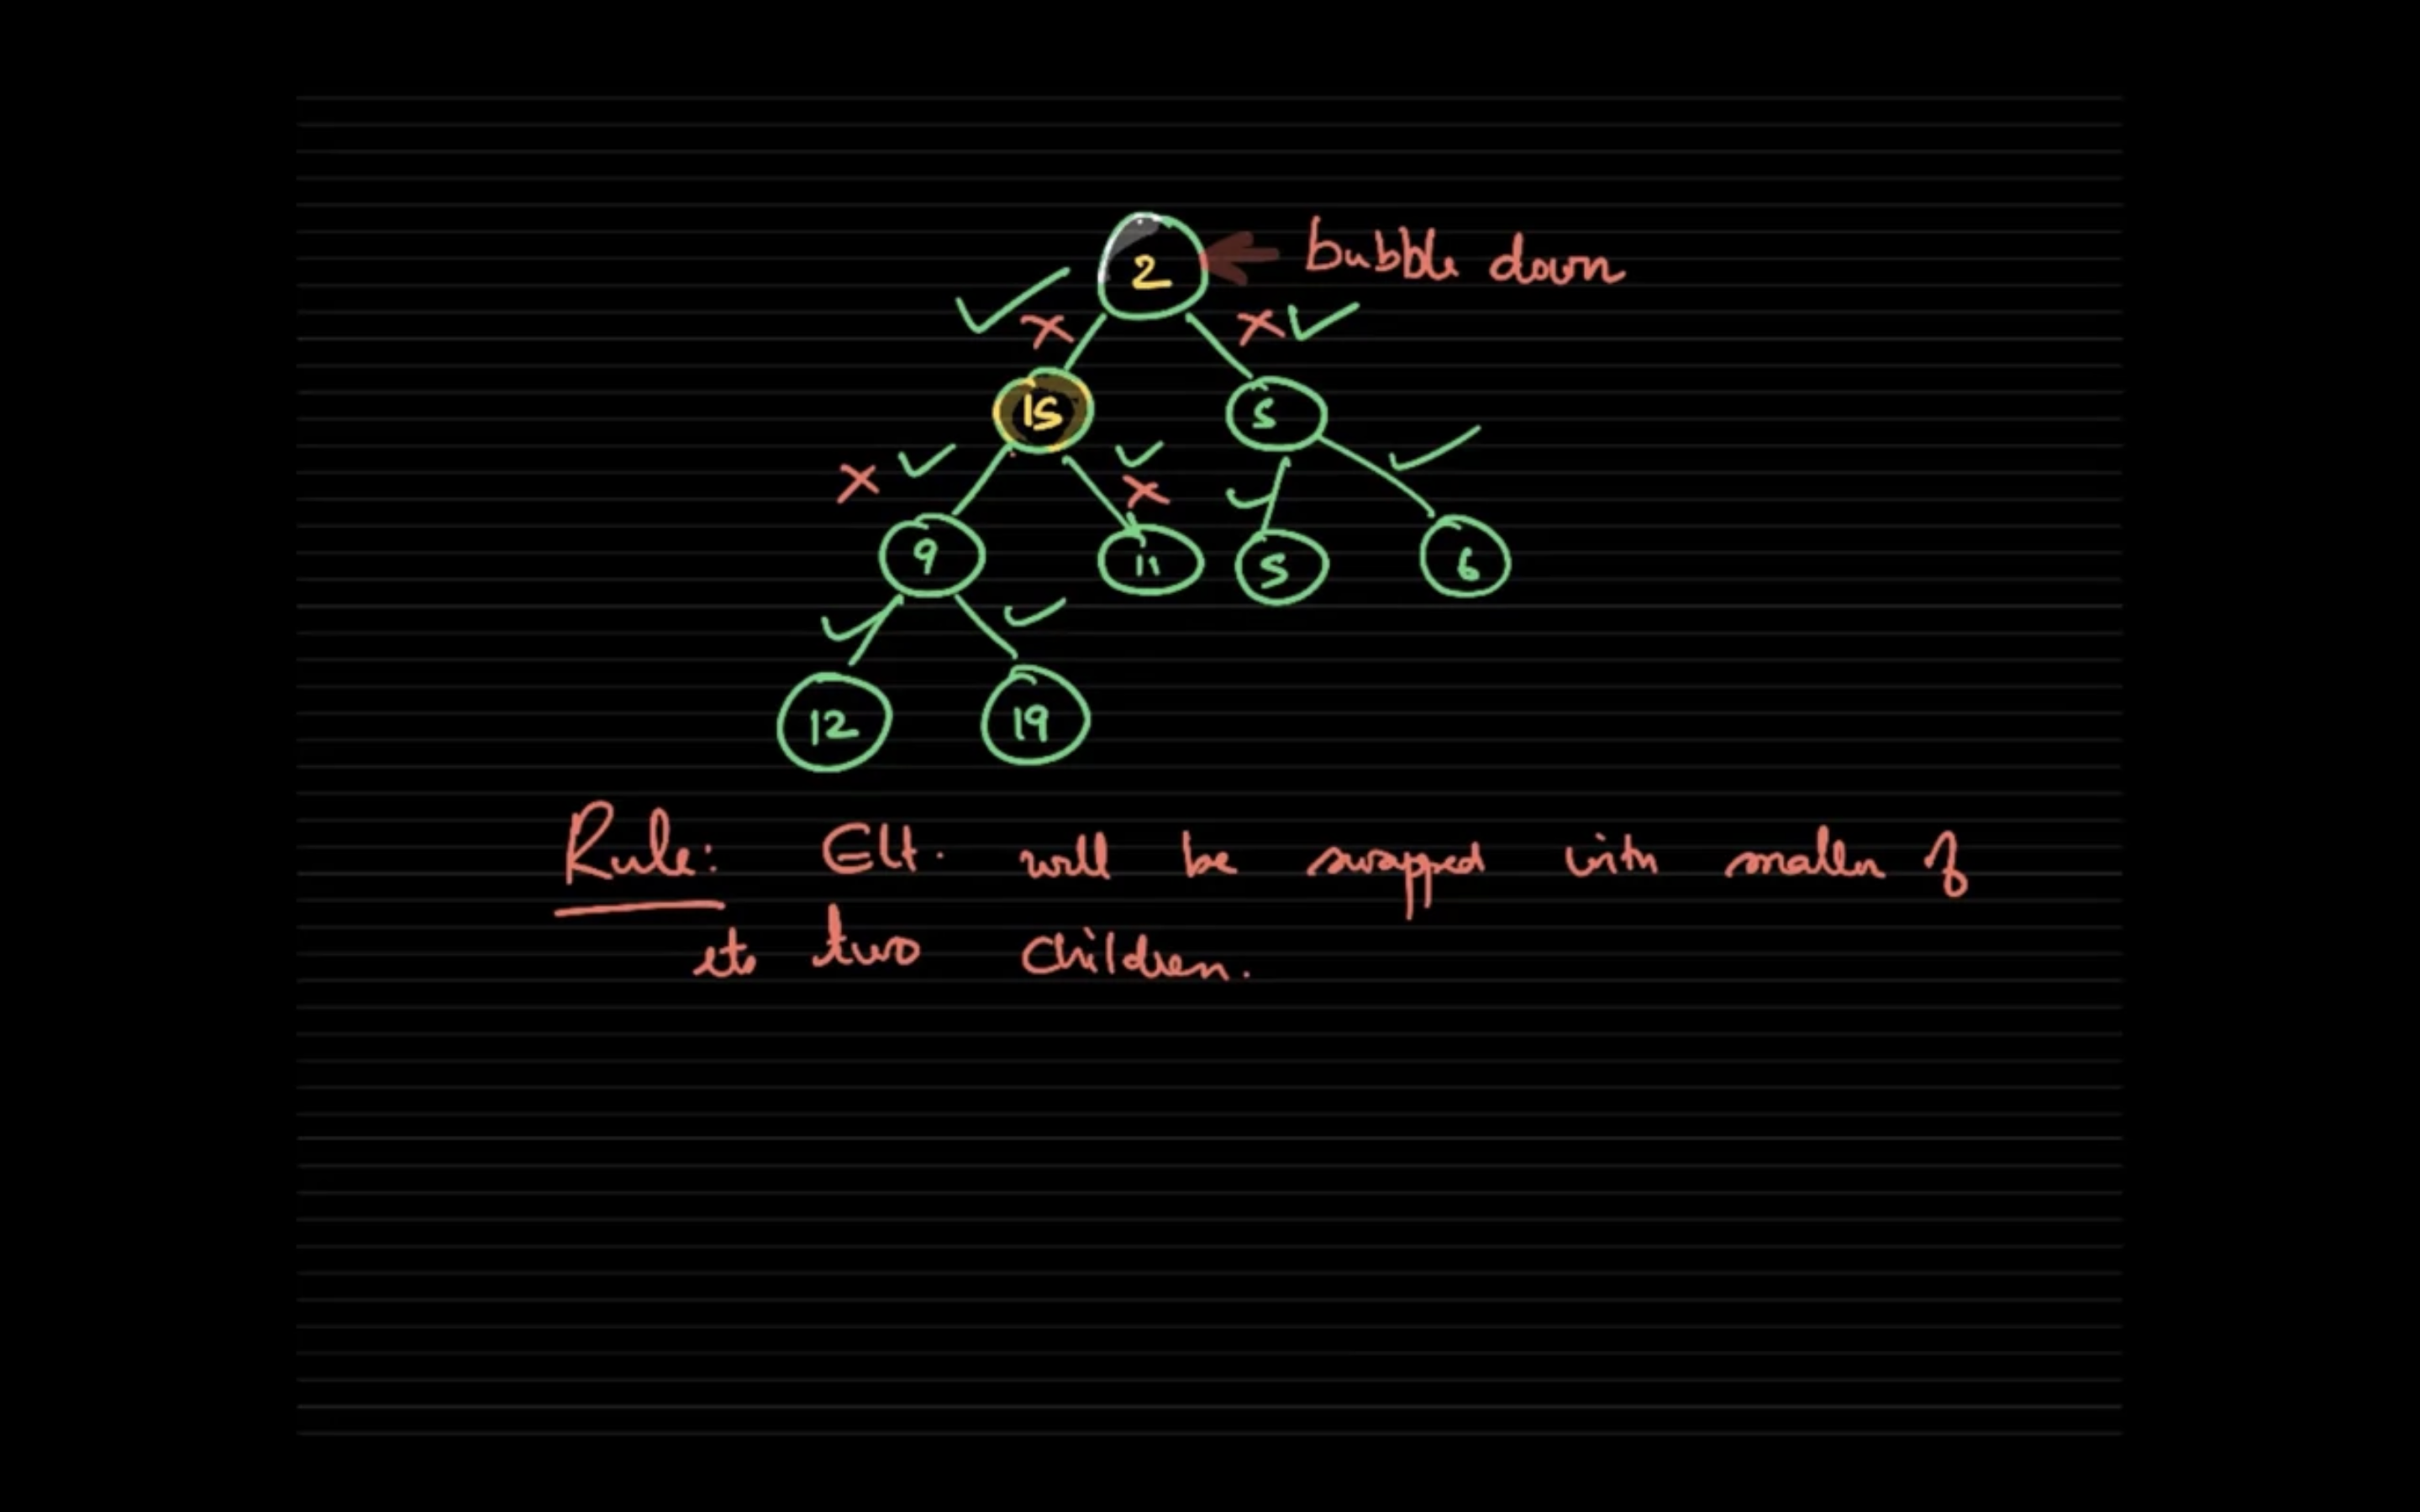 2 bubble down
15 5
9 11 5 6
12 19
Rule: Elt. will be swapped with smaller of
its two children.